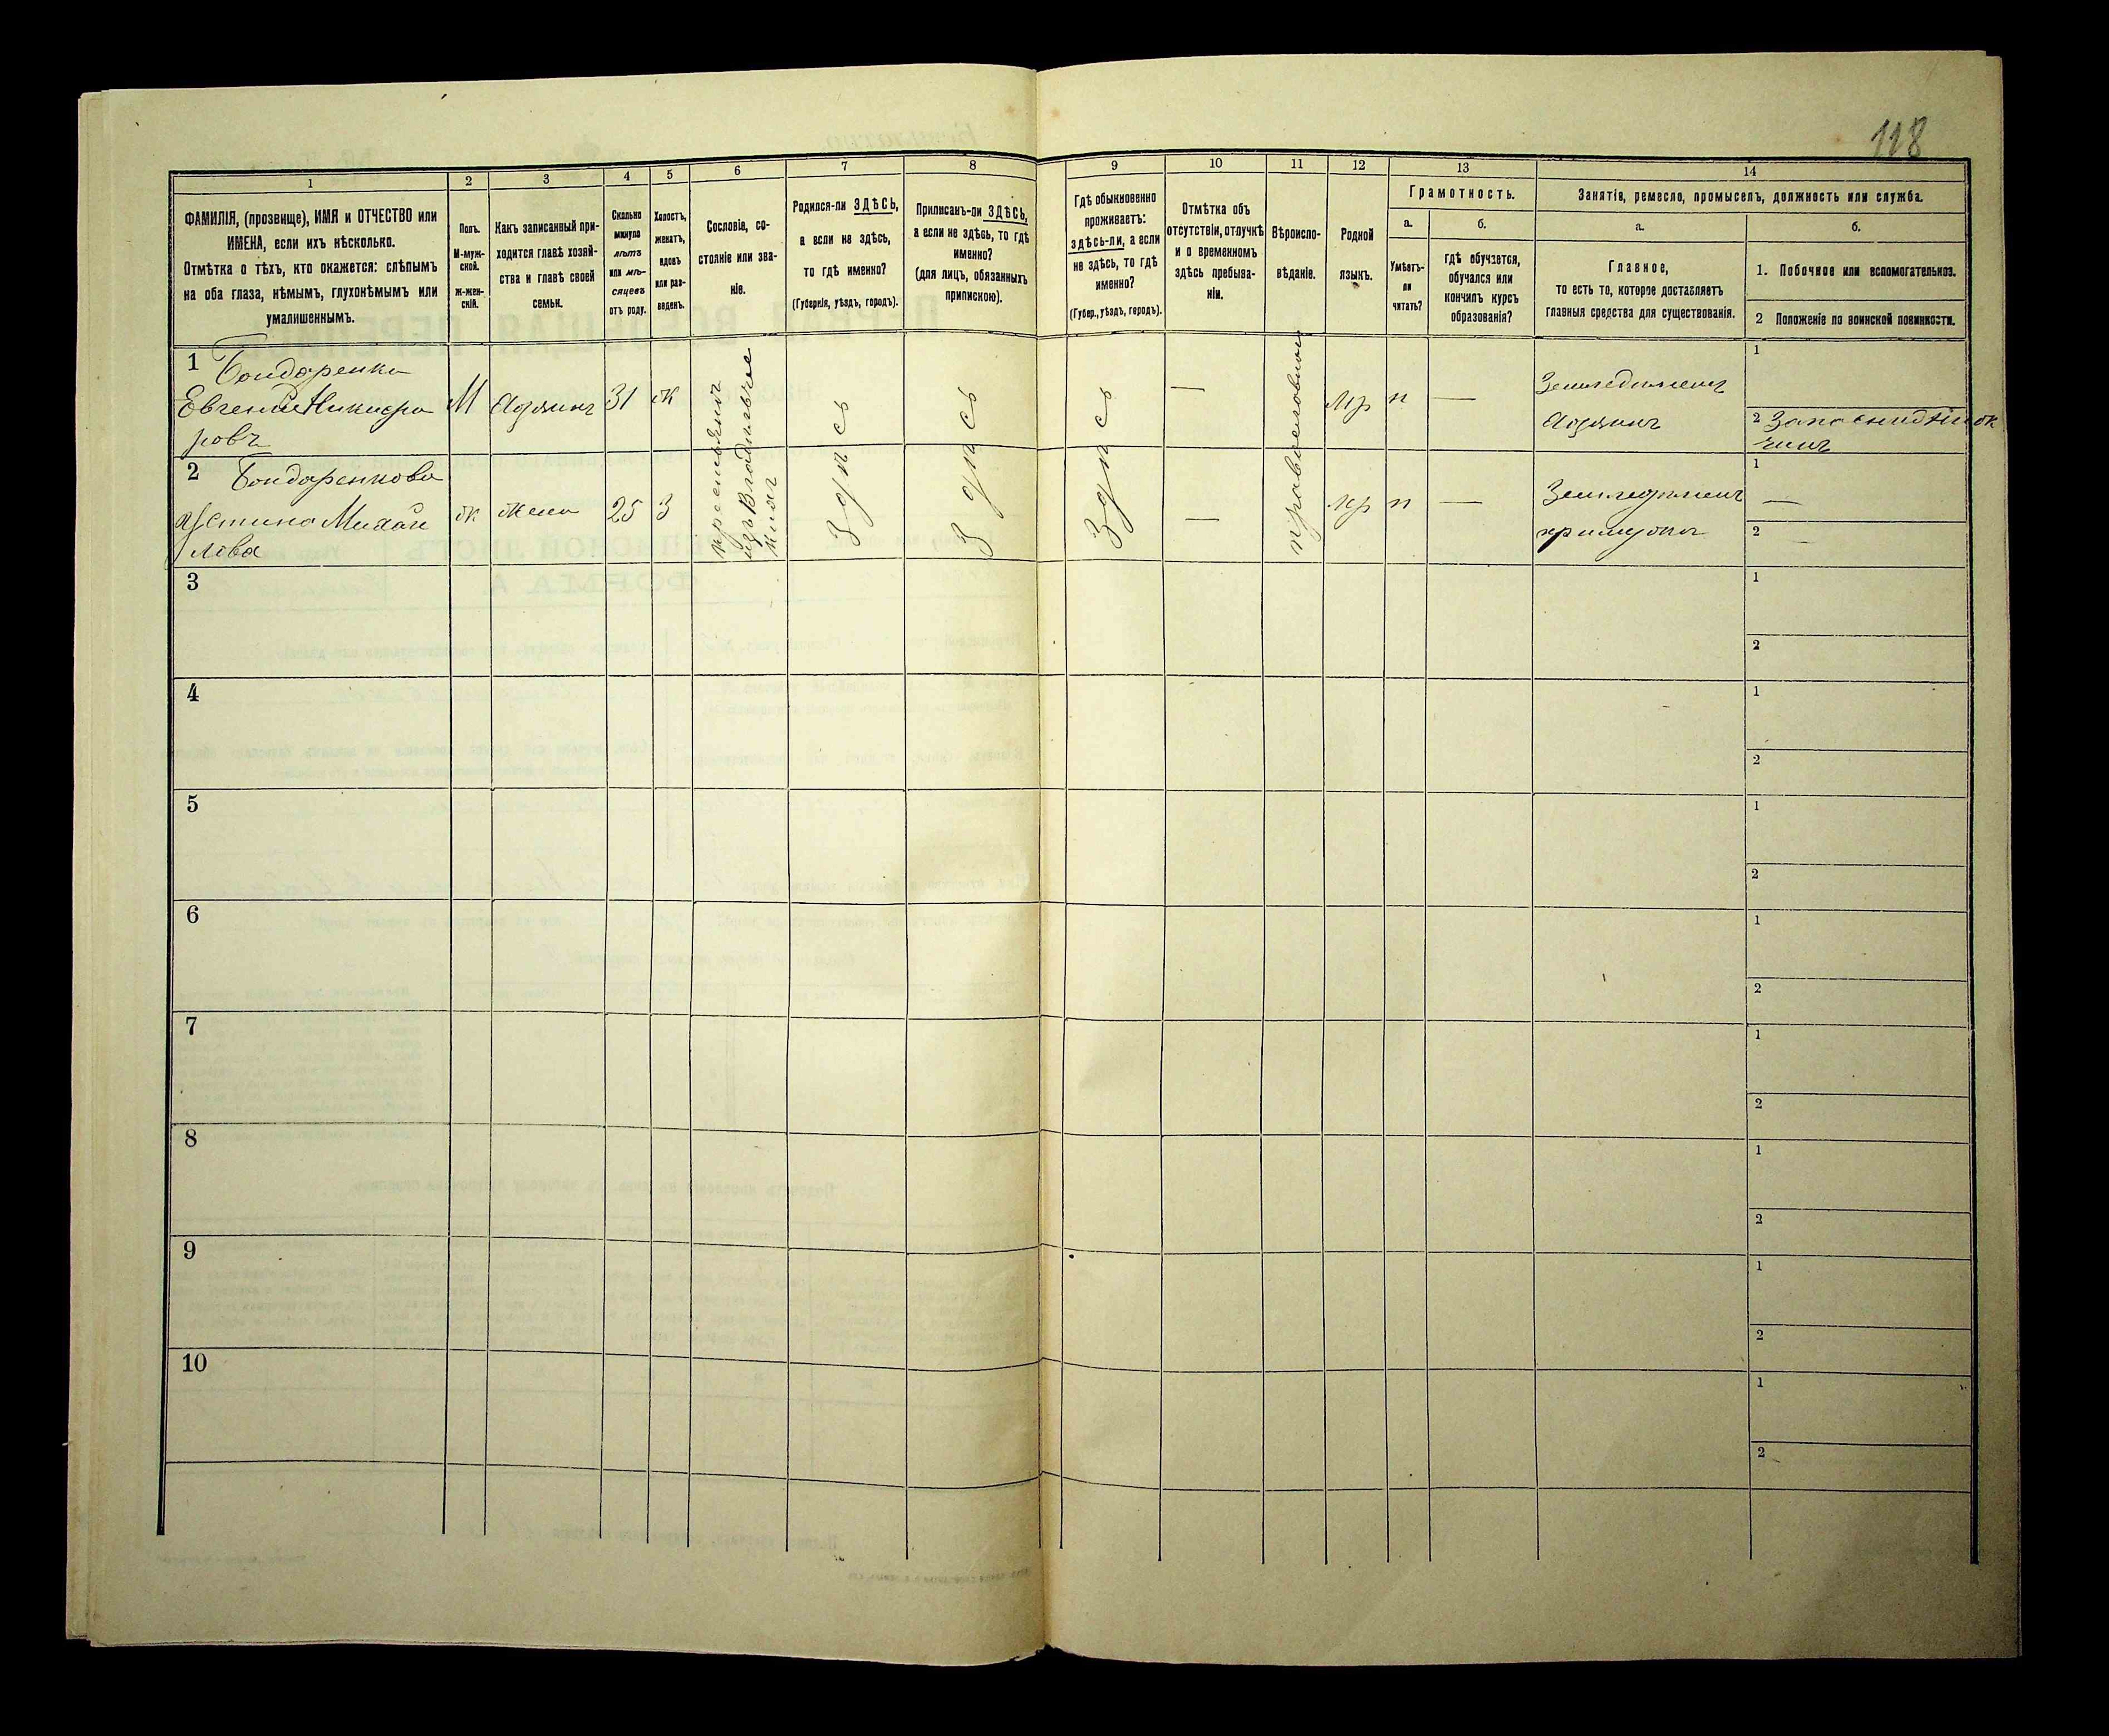 118
1
2
3
4
5
6
7
8
9
10
11
12
13
14
ФАМИЛІЯ, (прозвище), ИМЯ и ОТЧЕСТВО или
ИМЕНА, если ихъ нѣсколько.
Отмѣтка о тѣхъ, кто окажется: слѣпымъ
на оба глаза, нѣмымъ, глухонѣмымъ или
умалишеннымъ.
Полъ.
М-муж-
ской.
Ж-жен-
скій.
Какъ записанный при-
ходится главѣ хозяй-
ства и главѣ своей
семьи.
Сколько
минуло
лѣтъ
или мѣ-
сяцевъ
отъ роду.
Холостъ,
женатъ,
вдовъ
или раз-
веденъ.
Сословіе, со-
стояніе или зва-
ніе.
Родился-ли ЗДѢСЬ,
а если не здѣсь,
то гдѣ именно?
(Губернія, уѣздъ, городъ).
Приписанъ-ли ЗДѢСЬ,
а если не здѣсь, то гдѣ
именно?
(для лицъ, обязанныхъ
припискою).
Гдѣ обыкновенно
проживаетъ:
здѣсь-ли, а если
не здѣсь, то гдѣ
именно?
(Губер., уѣздъ, городъ).
Отмѣтка объ
отсутствіи, отлучкѣ
и о временномъ
здѣсь пребыва-
ніи.
Вѣроиспо-
вѣданіе.
Родной
языкъ.
Грамотность.
а.
б.
Умѣетъ-
ли
читать?
гдѣ обучается,
обучался или
кончилъ курсъ
образованія?
Занятіе, ремесло, промыселъ, должность или служба.
а.
б.
Главное,
то есть то, которое доставляетъ
главныя средства для существованія.
1. Побочное или вспомогательное.
2 Положеніе по воинской повинности.
1
Бондаренко
Евгеній Никифо
ровъ
М
хозяинъ
31
ж
крестьянъ
изъ владѣльче
скихъ
Здѣсь
Здѣсь
Здѣсь
—
православный
мр
н
—
Земледѣлецъ
хозяинъ
1
2
2
Бондаренкова
Устина Михай
лова
ж
жена
25
З
—
мр
н
—
Земледѣлецъ
при мужѣ
1 —
2 —
3
1
2
4
1
2
5
1
2
6
1
2
7
1
2
8
1
2
9
1
2
10
1
2